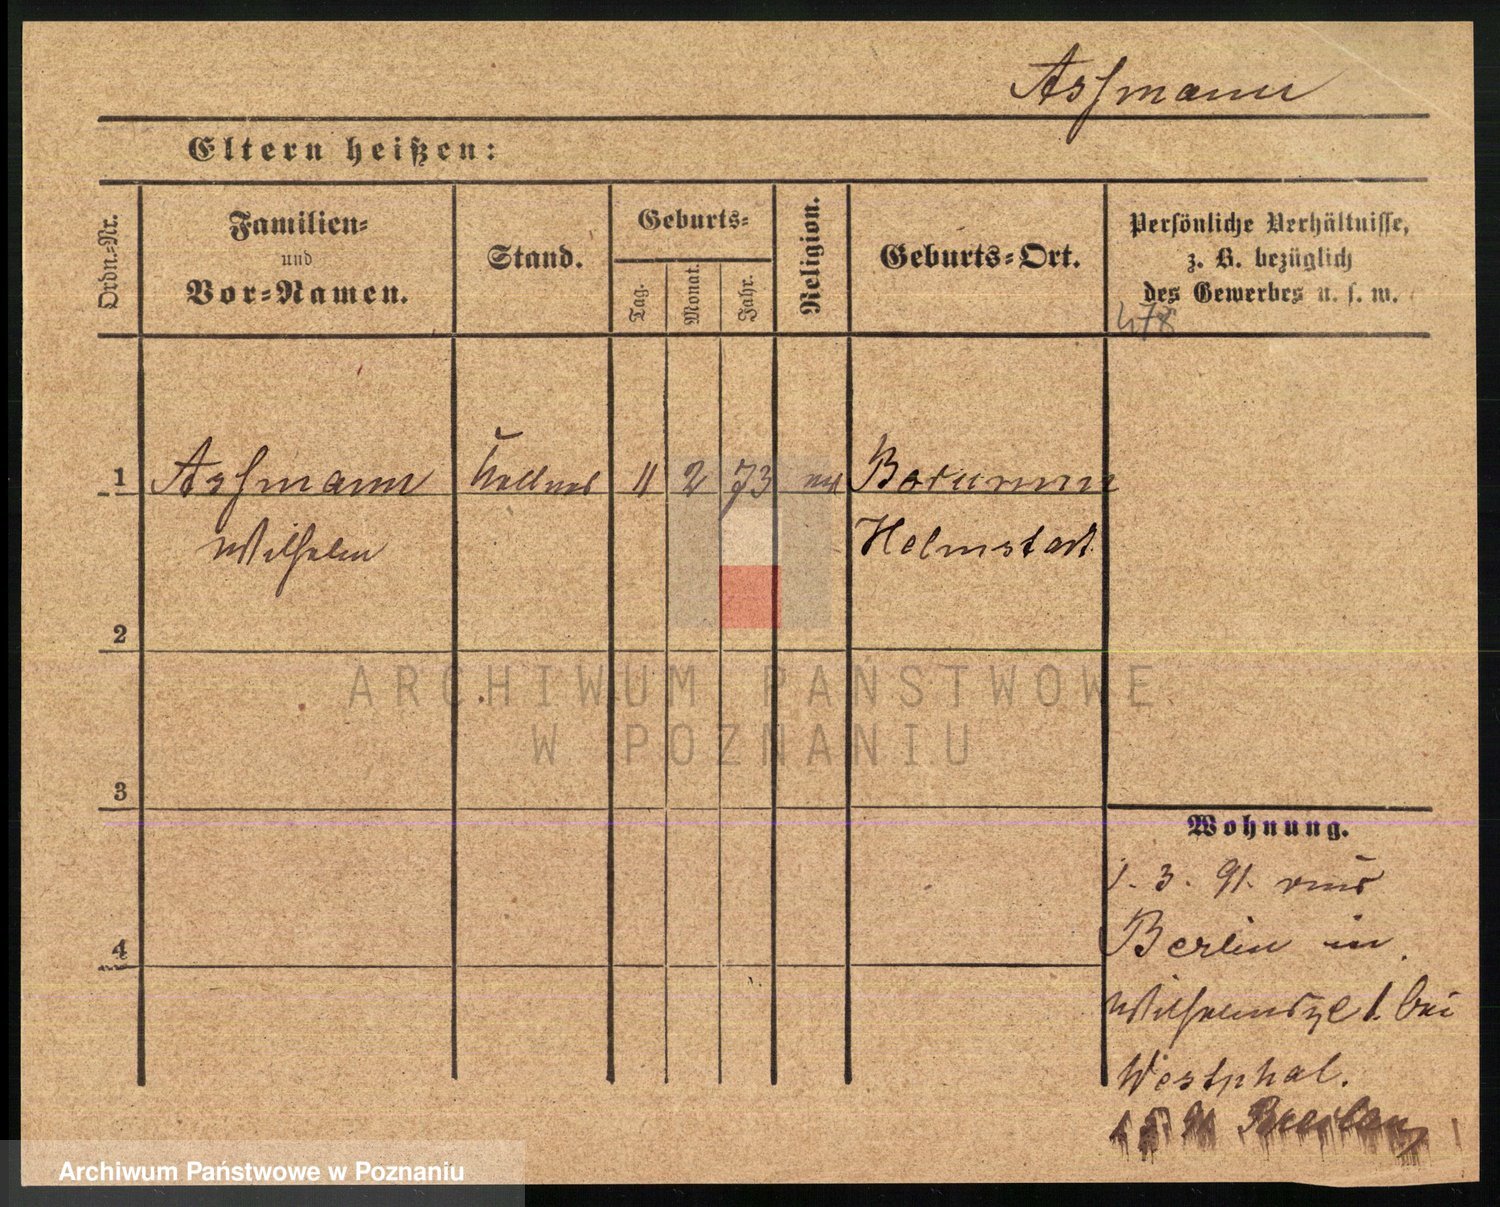 Assmann
Eltern heißen:
Ordn.-Nr.
Familien-
und
Vor-Namen.
Stand.
Geburts-
Tag.
Monat.
Jahr.
Religion.
Geburts-Ort.
Persönliche Verhältnisse,
z. B. bezüglich
des Gewerbes u. s. w.
478
1 Assmann Kellner 11 2 73 ev
Wilhelm Helmstadt
2
ARCHIWUM PAŃSTWOWE
W POZNANIU
3
Wohnung.
1. 3. 91. aus
4
Berlin in
Wilhelmspl 1. bei
Westphal.
91 Breslau
Archiwum Państwowe w Poznaniu